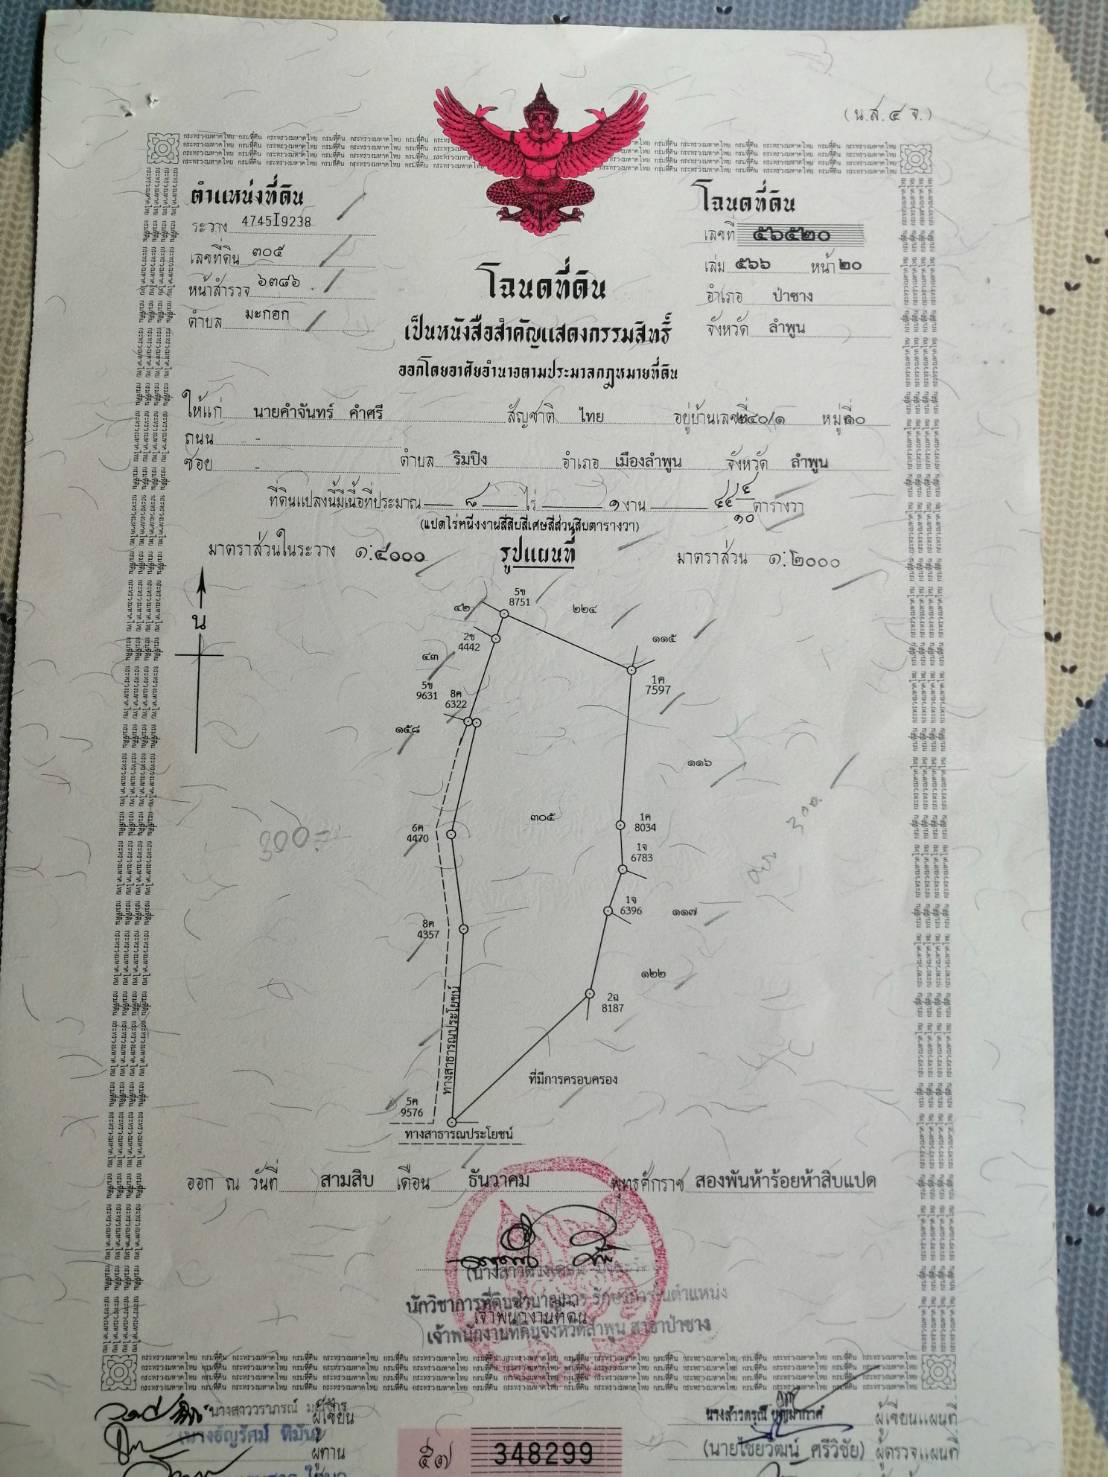 (น.ส.๔ จ.)
ตำแหน่งที่ดิน
ระวาง 4745I9238
เลขที่ดิน ๓๐๕
หน้าสำรวจ ๖๓๘๖
ตำบล มะกอก
โฉนดที่ดิน
เลขที่ ๕๖๕๒๐
เล่ม ๕๖๖ หน้า ๒๐
อำเภอ ป่าซาง
จังหวัด ลำพูน
โฉนดที่ดิน
เป็นหนังสือสำคัญแสดงกรรมสิทธิ์
ออกโดยอาศัยอำนาจตามประมวลกฎหมายที่ดิน
ให้แก่ นายคำจันทร์ คำศรี สัญชาติ ไทย อยู่บ้านเลขที่ ๒๔๐/๑ หมู่ที่ ๑๐
ถนน -
ซอย - ตำบล ริมปิง อำเภอ เมืองลำพูน จังหวัด ลำพูน
ที่ดินแปลงนี้มีเนื้อที่ประมาณ ๘ ไร่ ๑ งาน ๔๔ ๔/๑๐ ตารางวา
(แปดไร่หนึ่งงานสี่สิบสี่เศษสี่ส่วนสิบตารางวา)
มาตราส่วนในระวาง ๑:๔๐๐๐ รูปแผนที่ มาตราส่วน ๑:๒๐๐๐
น
5ข
8751
๔๒
๒๒๔
2ข
4442
๑๑๕
๔๓
1ค
7597
5ข
9631
8ค
6322
๑๕๘
๑๑๖
๓๐๕
6ค
4470
1ค
8034
1จ
6783
1จ
6396
๑๑๗
8ค
4357
๑๒๒
2ฉ
8187
ทางสาธารณประโยชน์
ที่มีการครอบครอง
5ค
9576
ทางสาธารณประโยชน์
ออก ณ วันที่ สามสิบ เดือน ธันวาคม พุทธศักราช สองพันห้าร้อยห้าสิบแปด
เจ้าพนักงานที่ดิน
เจ้าพนักงานที่ดินจังหวัดลำพูน สาขาป่าซาง
ผู้เขียน
ผู้ทาน
ผู้เขียนแผนที่
(นายไชยวัฒน์ ศรีวิชัย) ผู้ตรวจแผนที่
348299